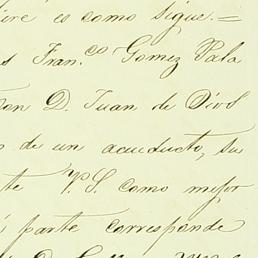 ere es como sigue.=
s Fran.co Gomez Pala
on D. Juan de Dios
de un acueducto, su
te V.S. como mejor
parte corresponde